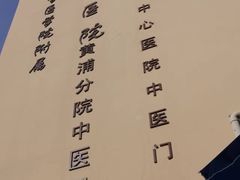 医学院附属
医院黄浦分院中医
中心医院中医门